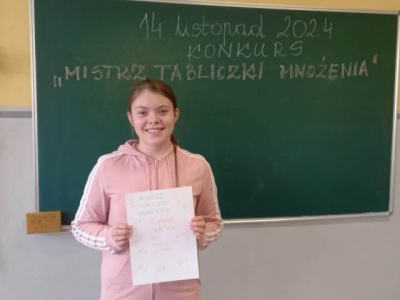 14 listopad 2024
KONKURS
"MISTRZ TABLICZKI MNOŻENIA"
MISTRZ
TABLICZKI
MNOŻENIA